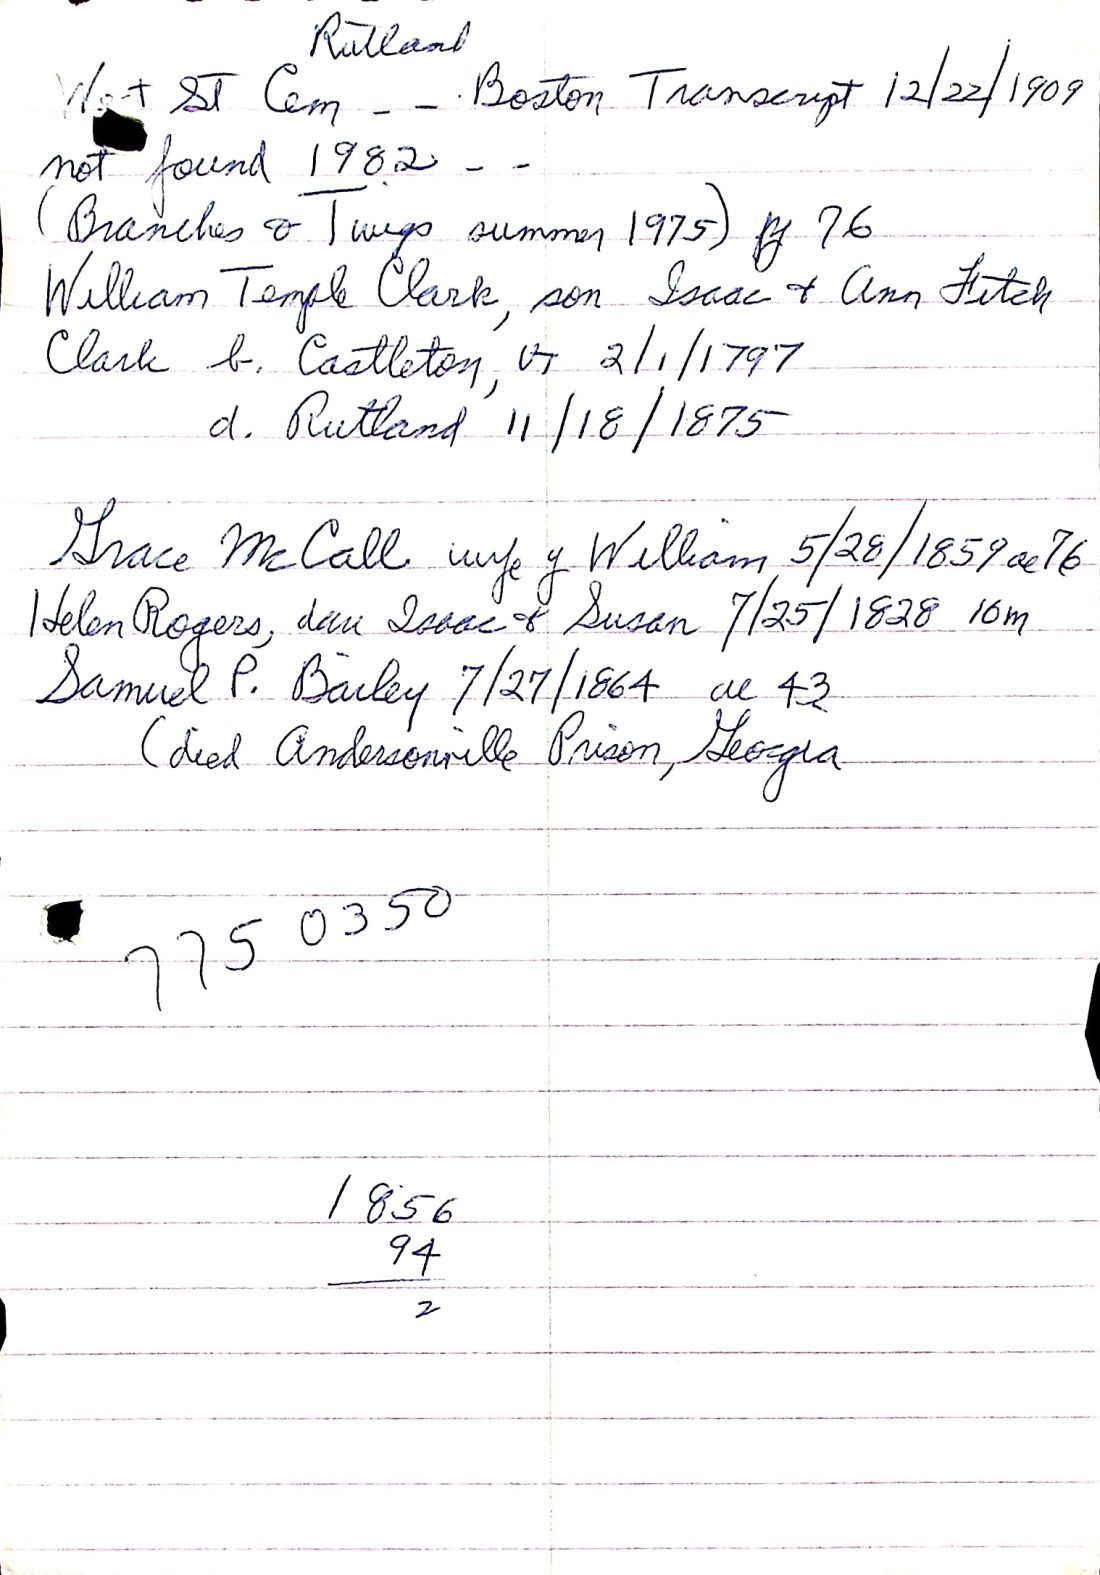 Rutland
West ST Cem - - Boston Transcript 12/22/1909
not found 1982 - -
(Branches & Twigs summer 1975) pg 76
William Temple Clark, son Isaac & Ann Fitch
Clark b. Castleton, VT 2/1/1797
d. Rutland 11/18/1875
Grace McCall wife of William 5/28/1859 ae 76
Helen Rogers, dau Isaac & Susan 7/25/1828 10m
Samuel P. Bailey 7/27/1864 ae 43
(died Andersonville Prison, Georgia
775 0350
1856
94
2